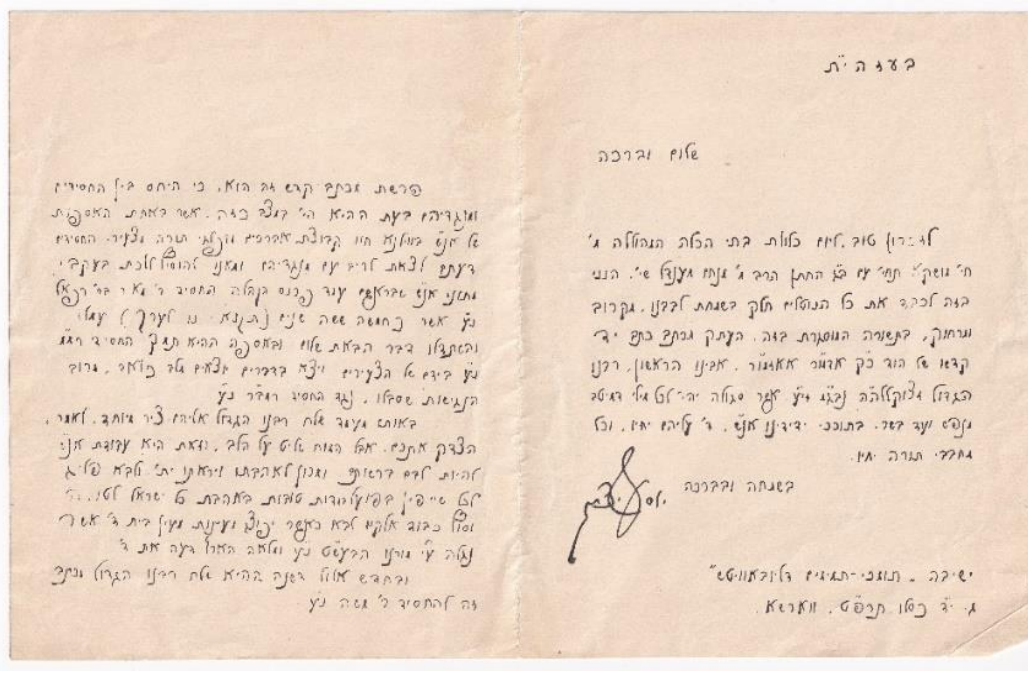 בעזהי״ת
שלום וברכה
לזכרון טוב, ליום כלולת בתי הכלה המהוללה מ׳
חי׳ מושקא תחי׳ עם ב״ג החתן הרב מ׳ מנחם מענדל שי׳. הנני
בזה לכבד את כל הנוטלים חלק בשמחת לבבנו, מקרוב
ומרחוק, בתשורה המוסגרת בזה, העתק מכתב כתב יד
קדשו של הוד כ״ק אדמו״ר אאזמו״ר, אבינו הראשון, רבנו
הגדול זצוקללה״ה נבג״מ זי״ע אשר סגולה יהי׳ לכל מילי דמיטב
מנפש ועד בשר, בתוככי ידידינו אנ״ש, ד׳ עליהם יחיו, וכל
מחבבי תורה יחיו.
בשמחה ובברכה
יוסף יצחק
ישיבה ״תומכי-תמימים דליובאוויטש״
ג׳ י״ד כסלו תרפ״ט, ווארשא.
פרשת מכתב קדש זה הוא, כי היחס בין החסידים
ומנגדיהם בעת ההיא הי׳ במצב כזה, אשר באחת האספות
של אנ״ש בווילנא חוו קבוצת אברכים מופלגי תורה מצעירי החסידים
דעתם לצאת לריב עם מנגדיהם ומאנו להוסיף ללכת בעקבי
מתוני אנ״ש שבראשם עמד פרנס הקהלה החסיד ר׳ מאיר בר׳ רפאל
נ״ע אשר כחמשה ששה שנים (תקנא־נו לערך) עמלו
והשתדלו דבר הבאת שלום ובאספה ההיא תמך החסיד
נ״ע בידם של הצעירים ויצא בדברים יוצאים מלב כואב, מרוב
הנגישות שסבלו, נגד החסיד נ״ע
באותו מעמד שלח רבנו הגדול אליהם ציר מיוחד, לאמר,
הצדק אתכם, אבל המוח שליט על הלב, וזאת היא עבודת אנ״ש
להיות לבם ברשותם ומכוון לאהבתו ויראתו ית׳ ולבא פליג
לכל שייפין בפועל במדות טובות באהבת כל ישראל
וסוף כבוד אלקים לבא כאשר יפוצו מעינות מעין בית ד׳ אשר
נגלה ע״י מורנו הבעש״ט נ״ע ומלאה הארץ דעה את ד׳
ובחדש אלול דשנה ההיא שלח רבנו הגדול מכתב
זה להחסיד ר׳ משה נ״ע